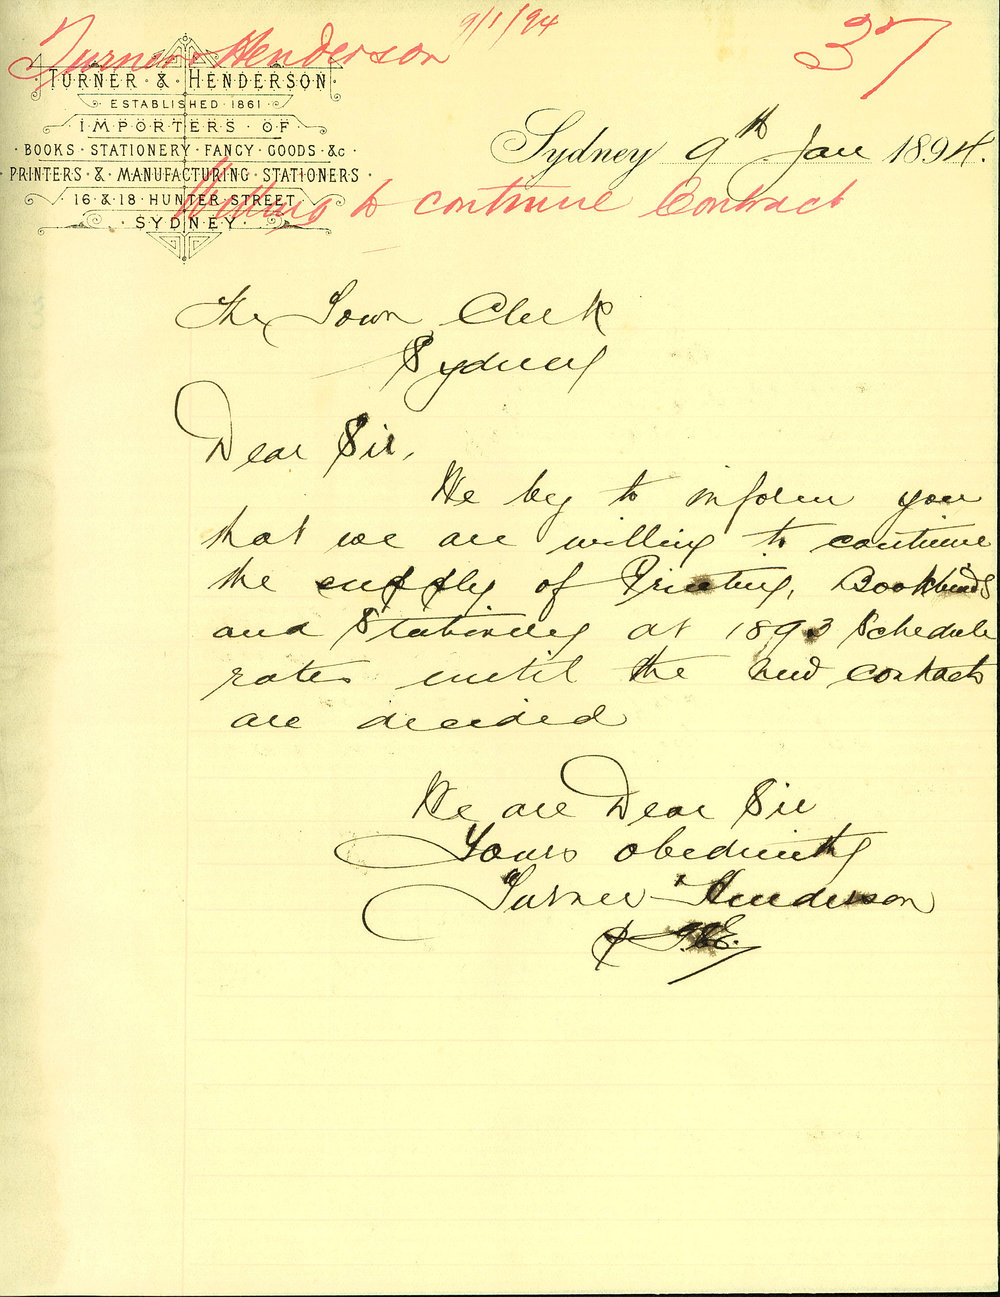 Turner & Henderson 9/1/94
37
TURNER & HENDERSON
ESTABLISHED · 1861
IMPORTERS · OF
· BOOKS · STATIONERY · FANCY · GOODS · &c ·
PRINTERS · & · MANUFACTURING · STATIONERS ·
16 & 18 · HUNTER STREET
· SYDNEY ·
Sydney 9th Jan 1894.
Willing to continue Contract
The Town Clerk
Sydney
Dear Sir,
We beg to inform you
that we are willing to continue
the supply of Printing, Bookbindg
and Stationery at 1893 Schedule
rates until the new contracts
are decided
We are Dear Sir
Yours obediently
Turner Henderson